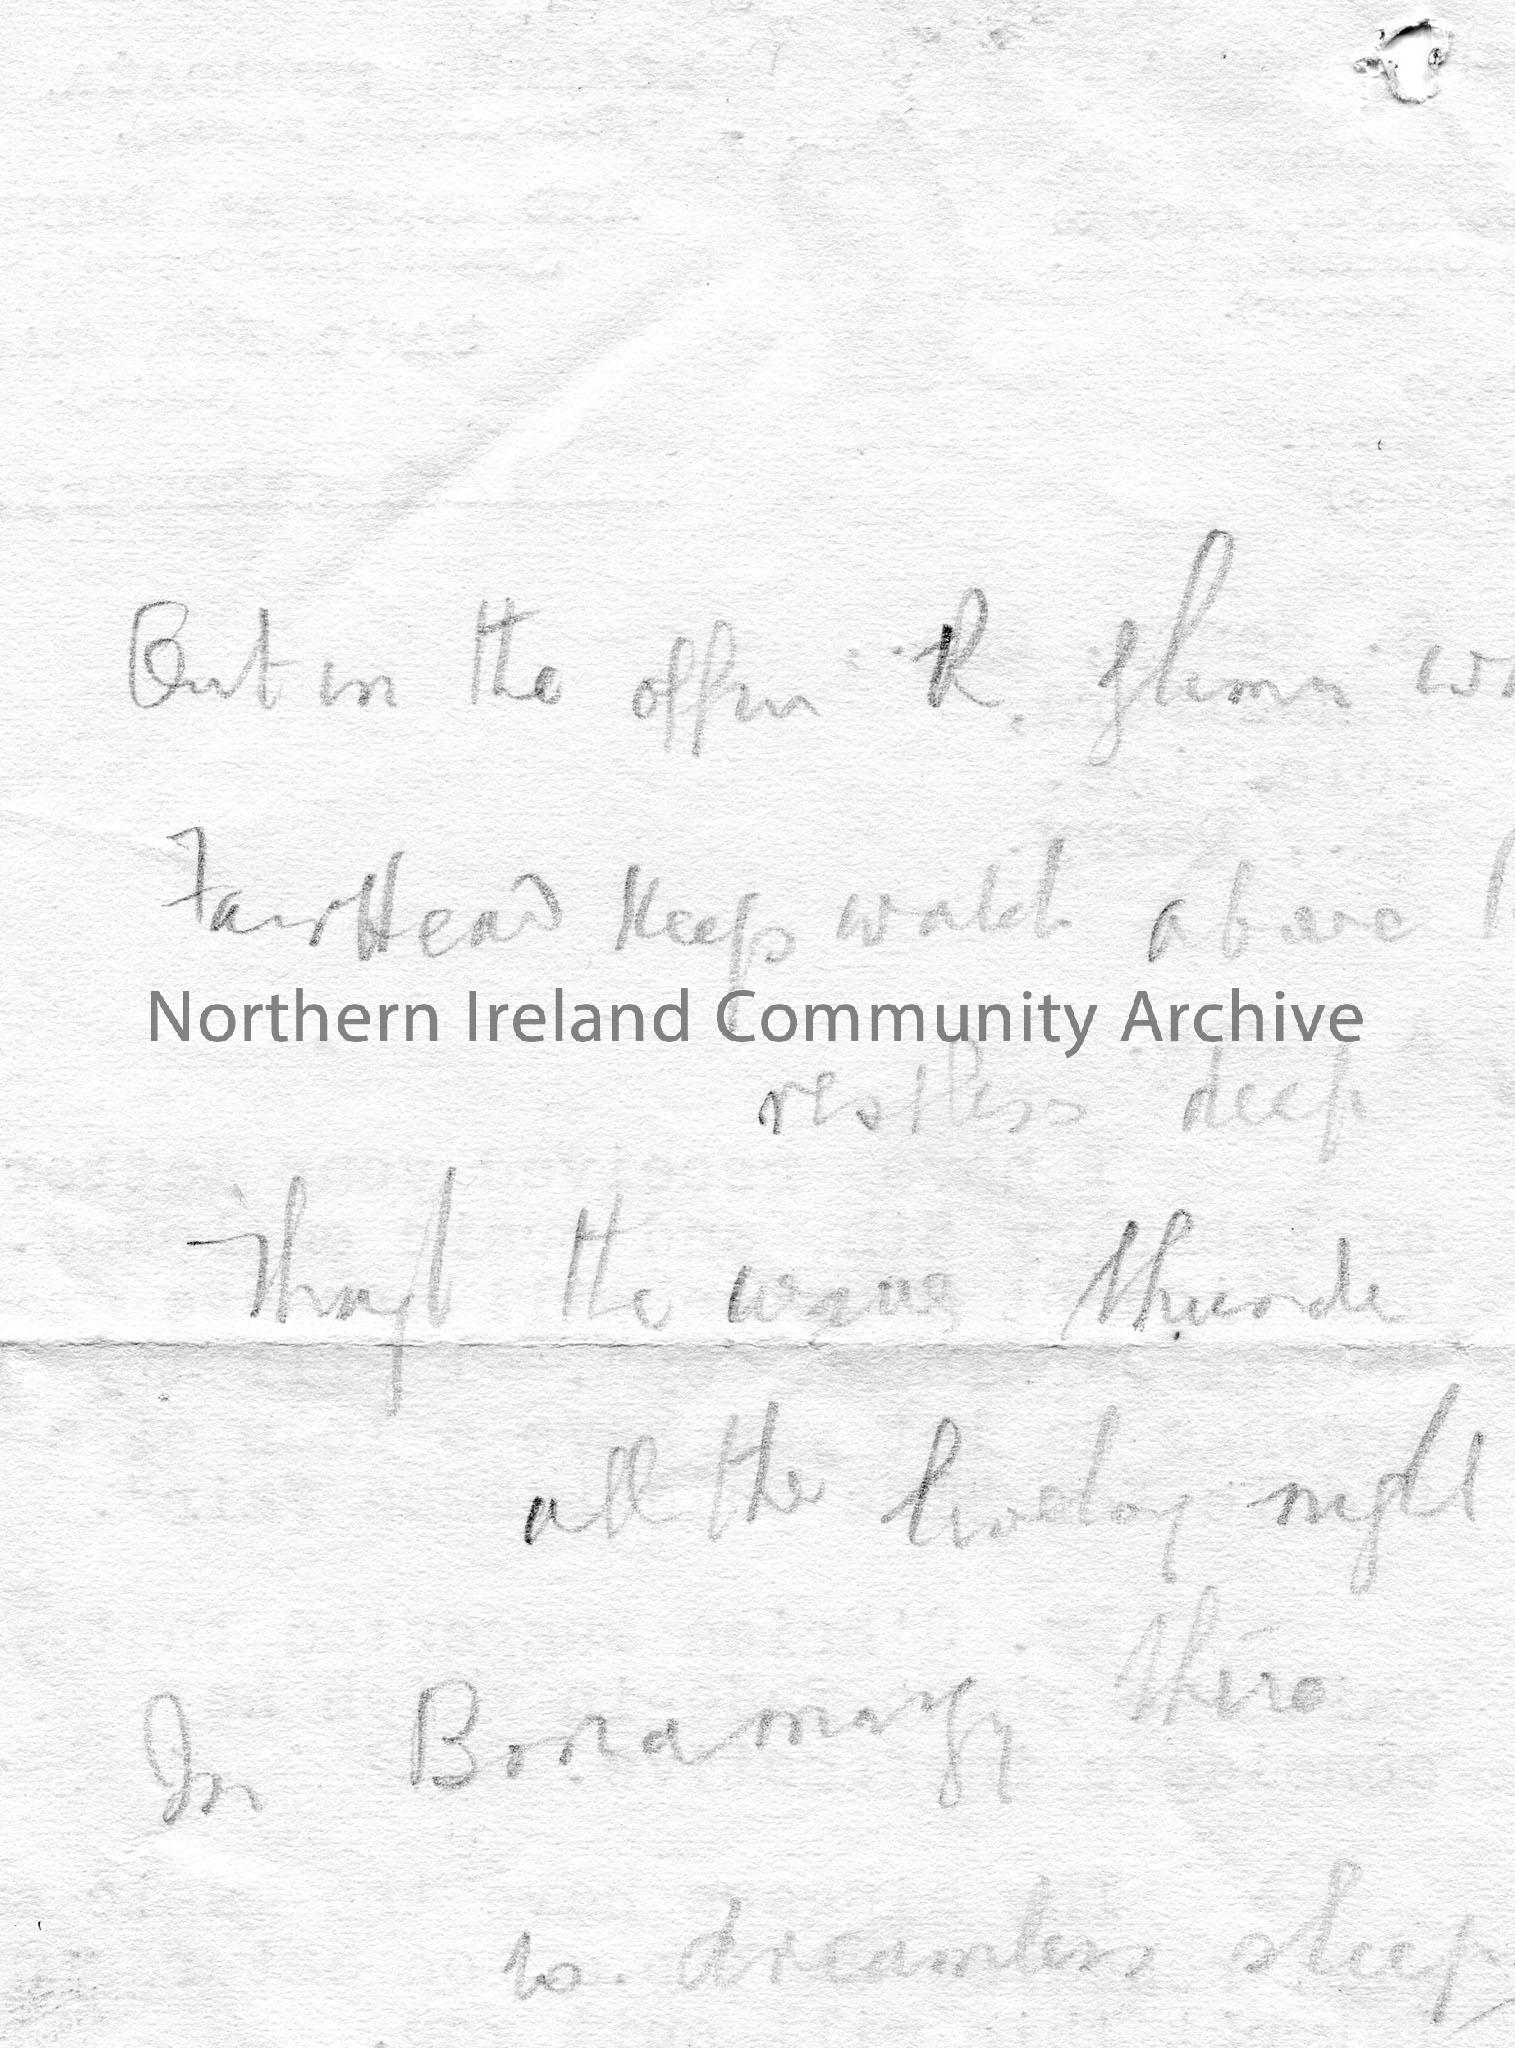 Out in the offin R. gleams
FairHead keeps watch above
Northern Ireland Community Archive
restless deep
Though the waves thunde
all the livelong night
In Bonamargy there
is dreamless sleep